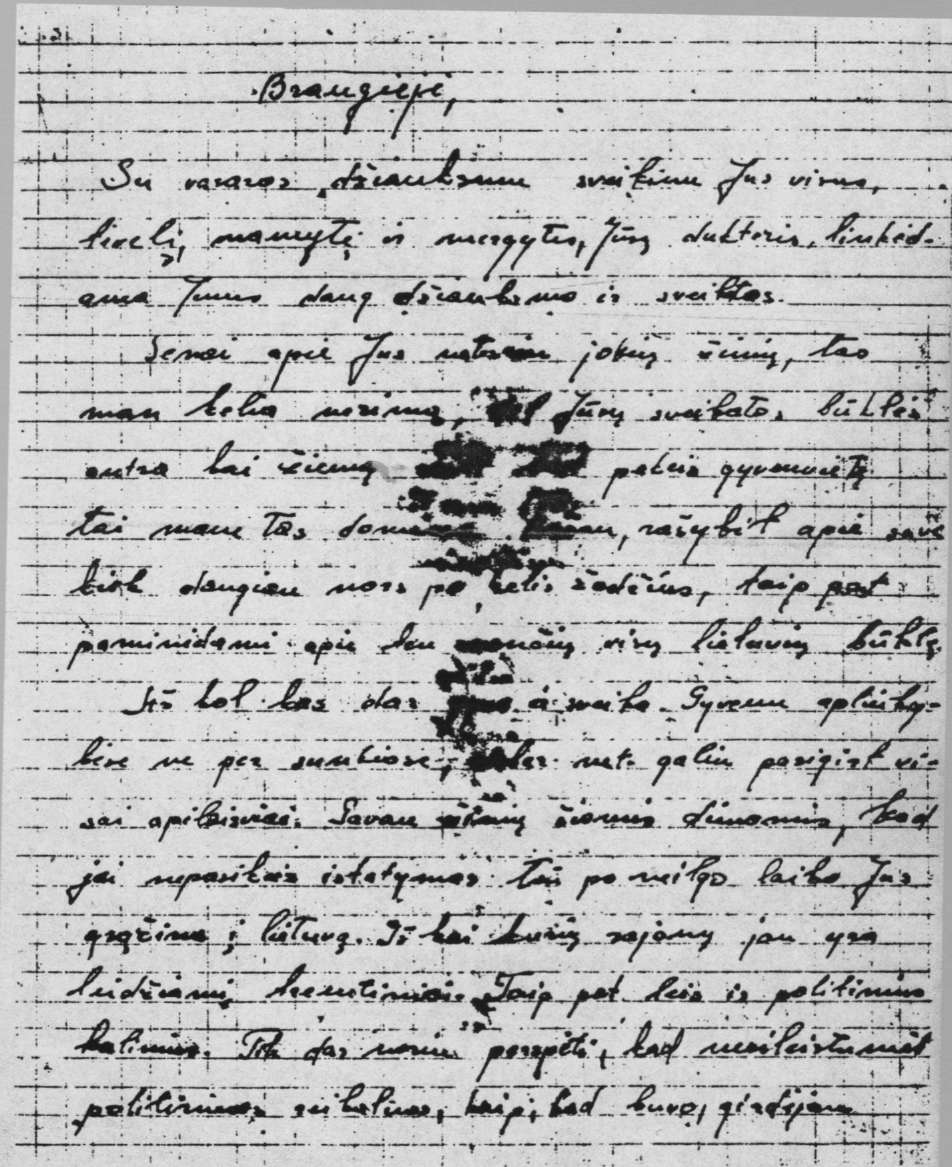 Brangieji,
Su vasaros džiaugsmu sveikinu Jus visus,
tėvelį, mamytę ir mergytes, Jūsų dukteris, linkėd-
ama Jums daug džiaugsmo ir sveikatos.
Senai apie Jus neturiu jokių žinių, tas
man kelia nerimą, dėl Jūsų sveikatos būklės
antra kai žiemą pakeis gyvenvietę
tai mane tas domina. rašykit apie save
kiek daugiau nors po kelis žodžius, taip pat
paminėdami apie ten esančių visų lietuvių būklę.
Aš kol kas dar sveika. Gyvenu aplinky-
bėse ne per sunkiose, net galiu pasigirt vi-
sai apileisviai. Gavau žinių šiomis dienomis, kad
jei nepasikeis įstatymas tai po neilgo laiko Jus
grąžins į lietuvą. Iš kai kurių rajonų jau yra
leidžiami tremtiniai. Taip pat leis ir politinius
kalinius. Tik dar noriu perspėti, kad nesileistumėt
politiniuos reikaluos, kaip, kad buvo, girdėjau